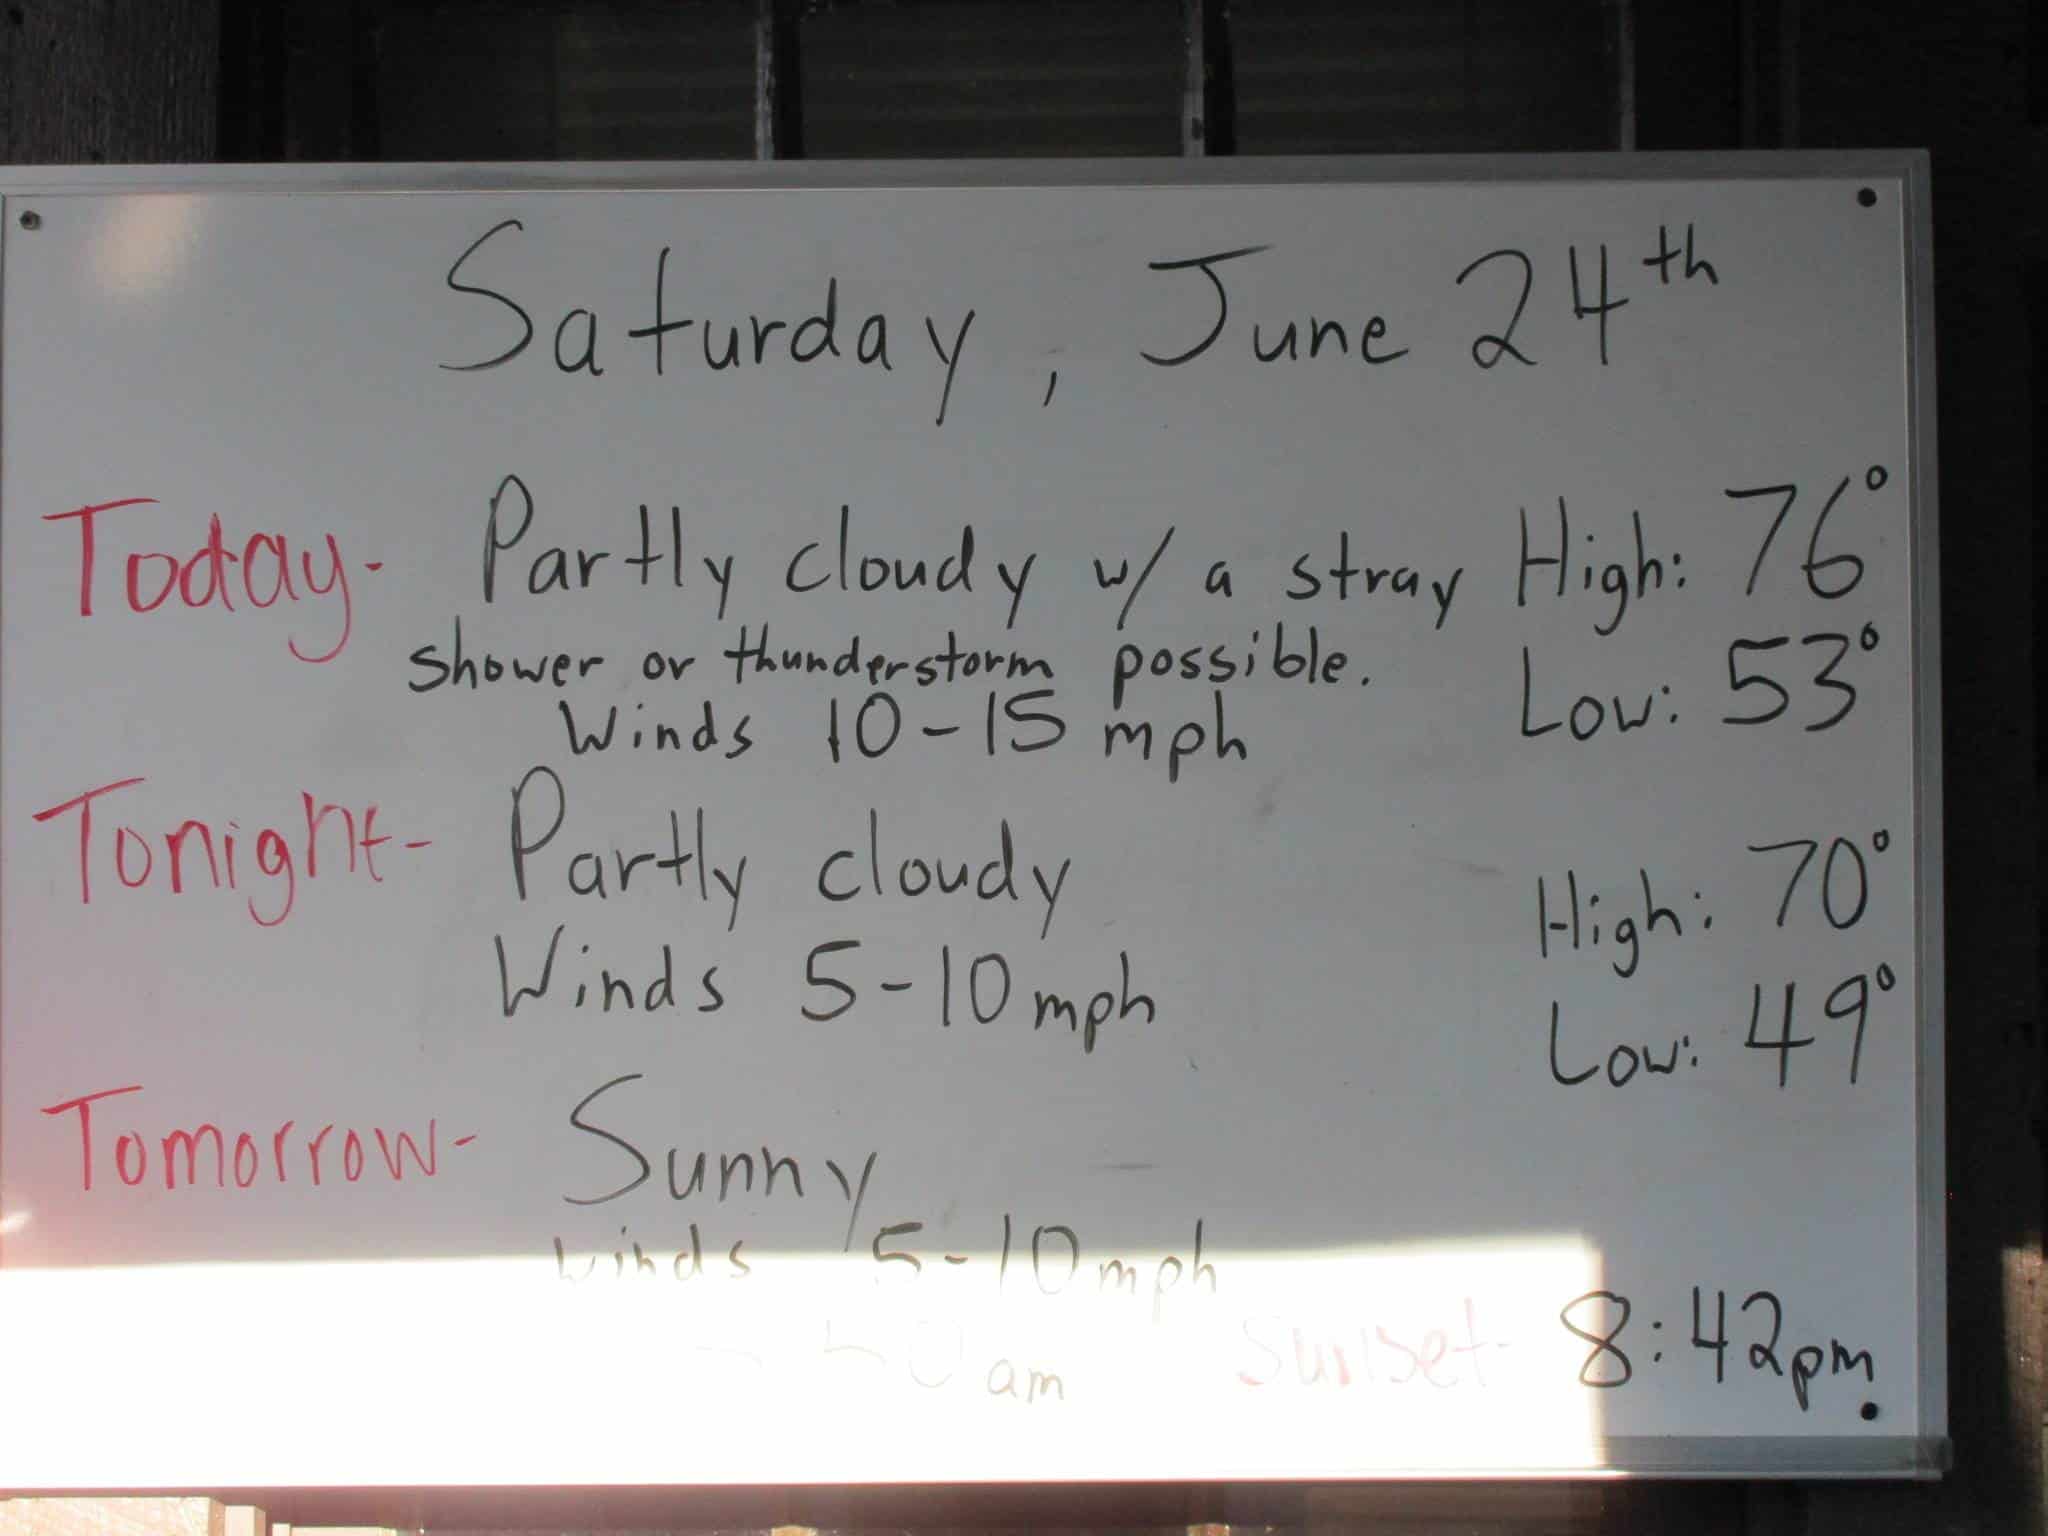 Saturday, June 24th
Today- Partly cloudy w/ a stray High: 76°
shower or thunderstorm possible. Low: 53°
Winds 10-15 mph
Tonight- Partly cloudy High: 70°
Winds 5-10mph Low: 49°
Tomorrow- Sunny
Winds 5-10mph
am Sunset- 8:42pm